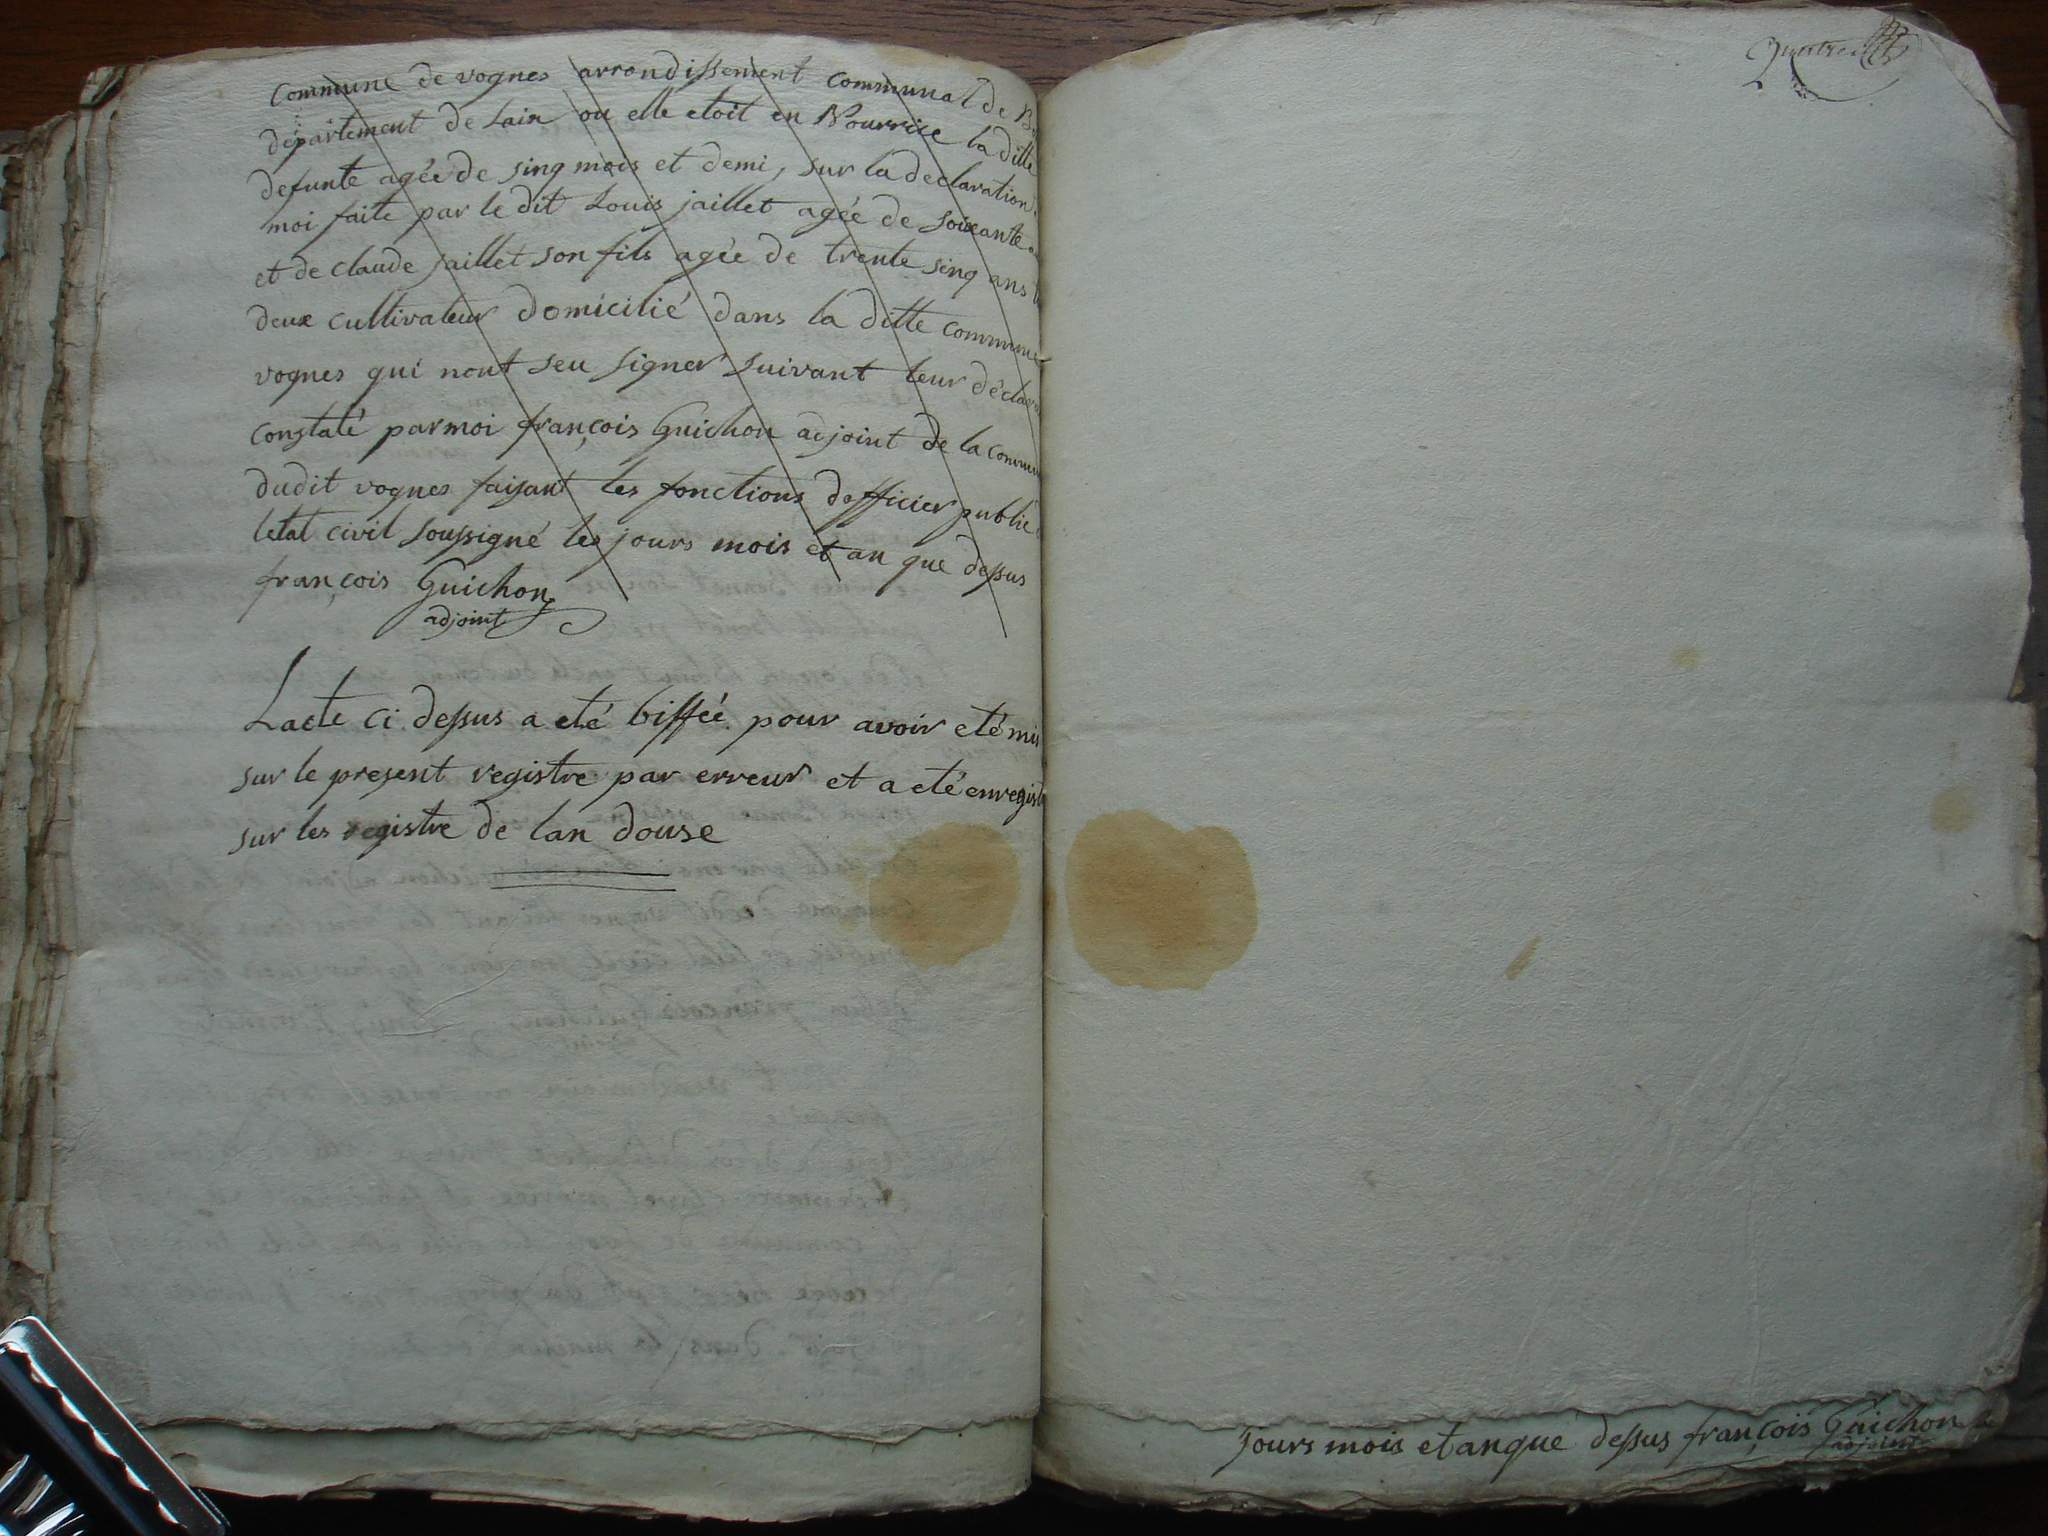 commune de vognes arrondissement communal de
département de Lain ou elle etoit en Nourrice la ditte
defunte agée de sinq mois et demi, sur la declaration
moi faite par le dit Louis jaillet agée de soixante
et de claude jaillet son fils agée de trente sinq ans
deux cultivateur domicilié dans la ditte commune
vognes qui nont seu signer suivant leur déclar
constaté parmoi françois Guichon adjoint de la commun
dudit vognes faisant les fonctions dofficier public
letat civil soussigné les jours mois et an que dessus
françois Guichon
adjoint
Lacte ci dessus a eté biffée pour avoir eté mis
sur le present registre par erreur et a eté enregist
sur les registre de lan douse
jours mois et an que dessus françois Guichon
adjoint